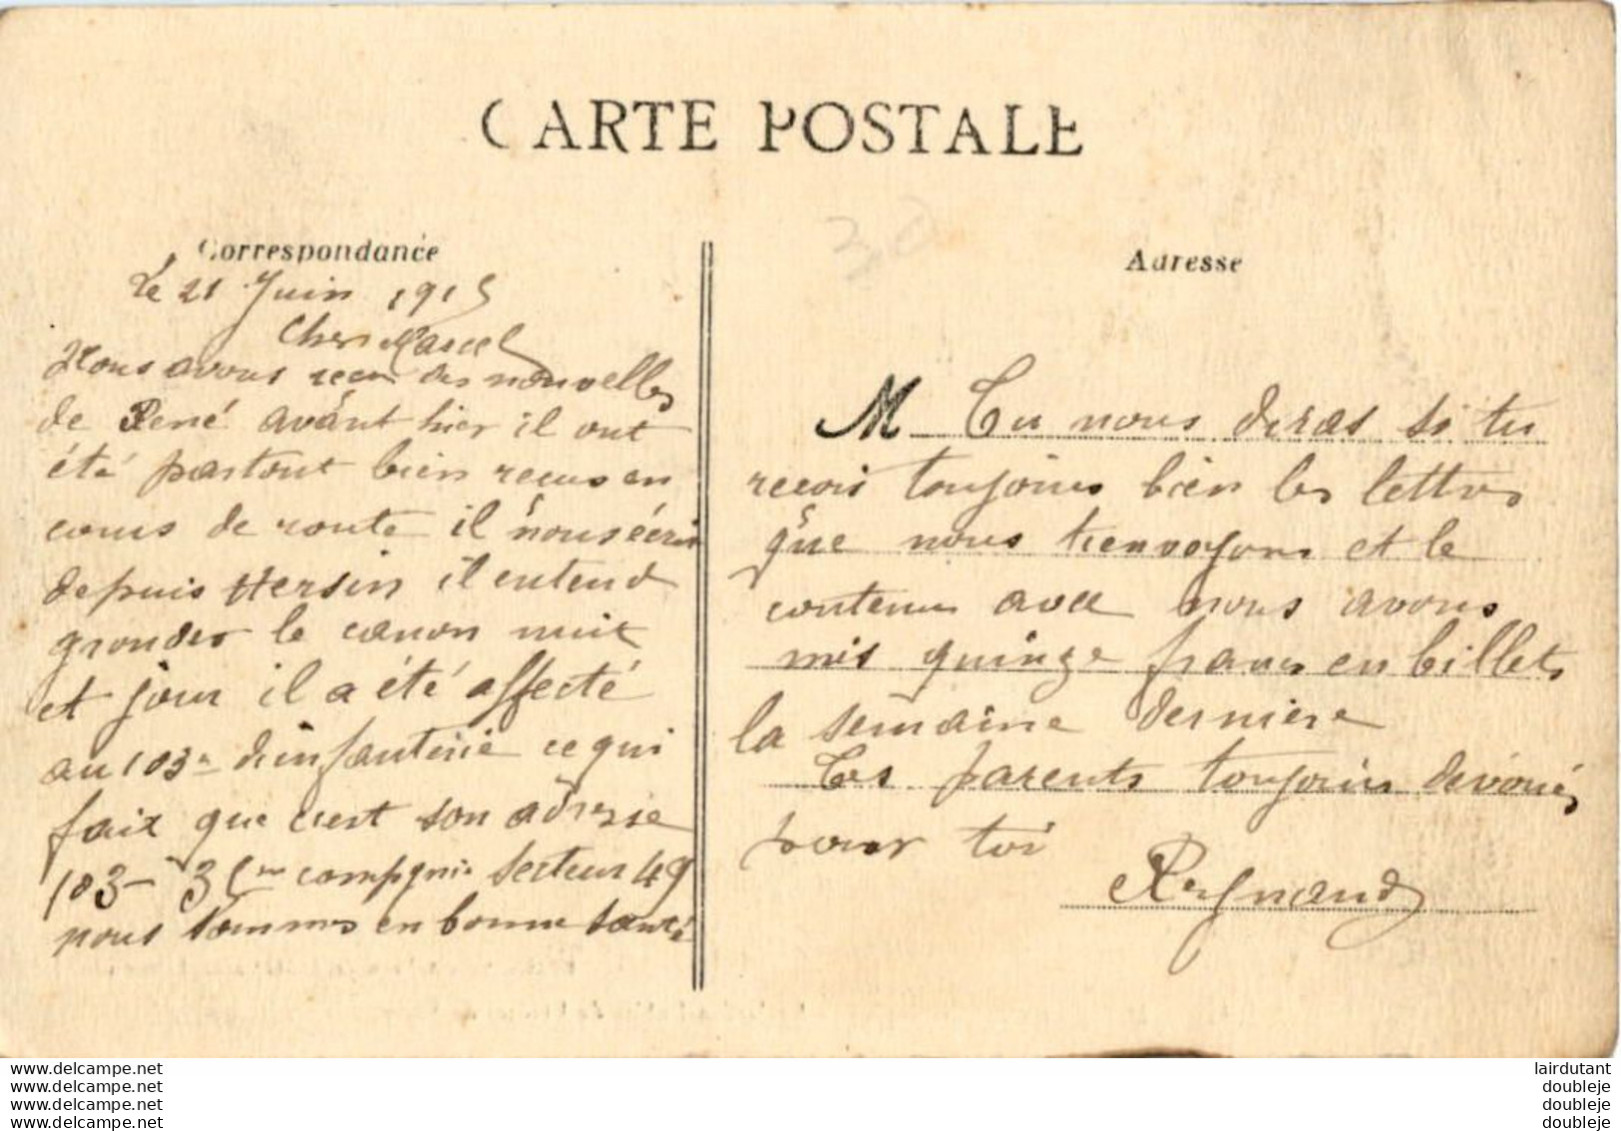 CARTE POSTALE
Correspondance
Le 21 Juin 1915
Cher Marcel
Nous avons recu des nouvelles
de René avant hier il ont
été partout bien recus en
cours de route il nous écrit
depuis Hersin il entend
gronder le canon nuit
et jour il a été affecté
au 103e d'infanterie ce qui
fait que c'est son adresse
103 - 3 compgnie secteur 49
nous sommes en bonne santé
Adresse
M Tu nous diras si tu
recois toujours bien les lettres
que nous t'envoyons et le
contenu avec nous avons
mis quinze francs en billets
la semaine derniere
Tes parents toujours dévoués
pour toi
Reynaud
www.delcampe.net
www.delcampe.net
www.delcampe.net
www.delcampe.net
lairdutant
doubleje
doubleje
doubleje